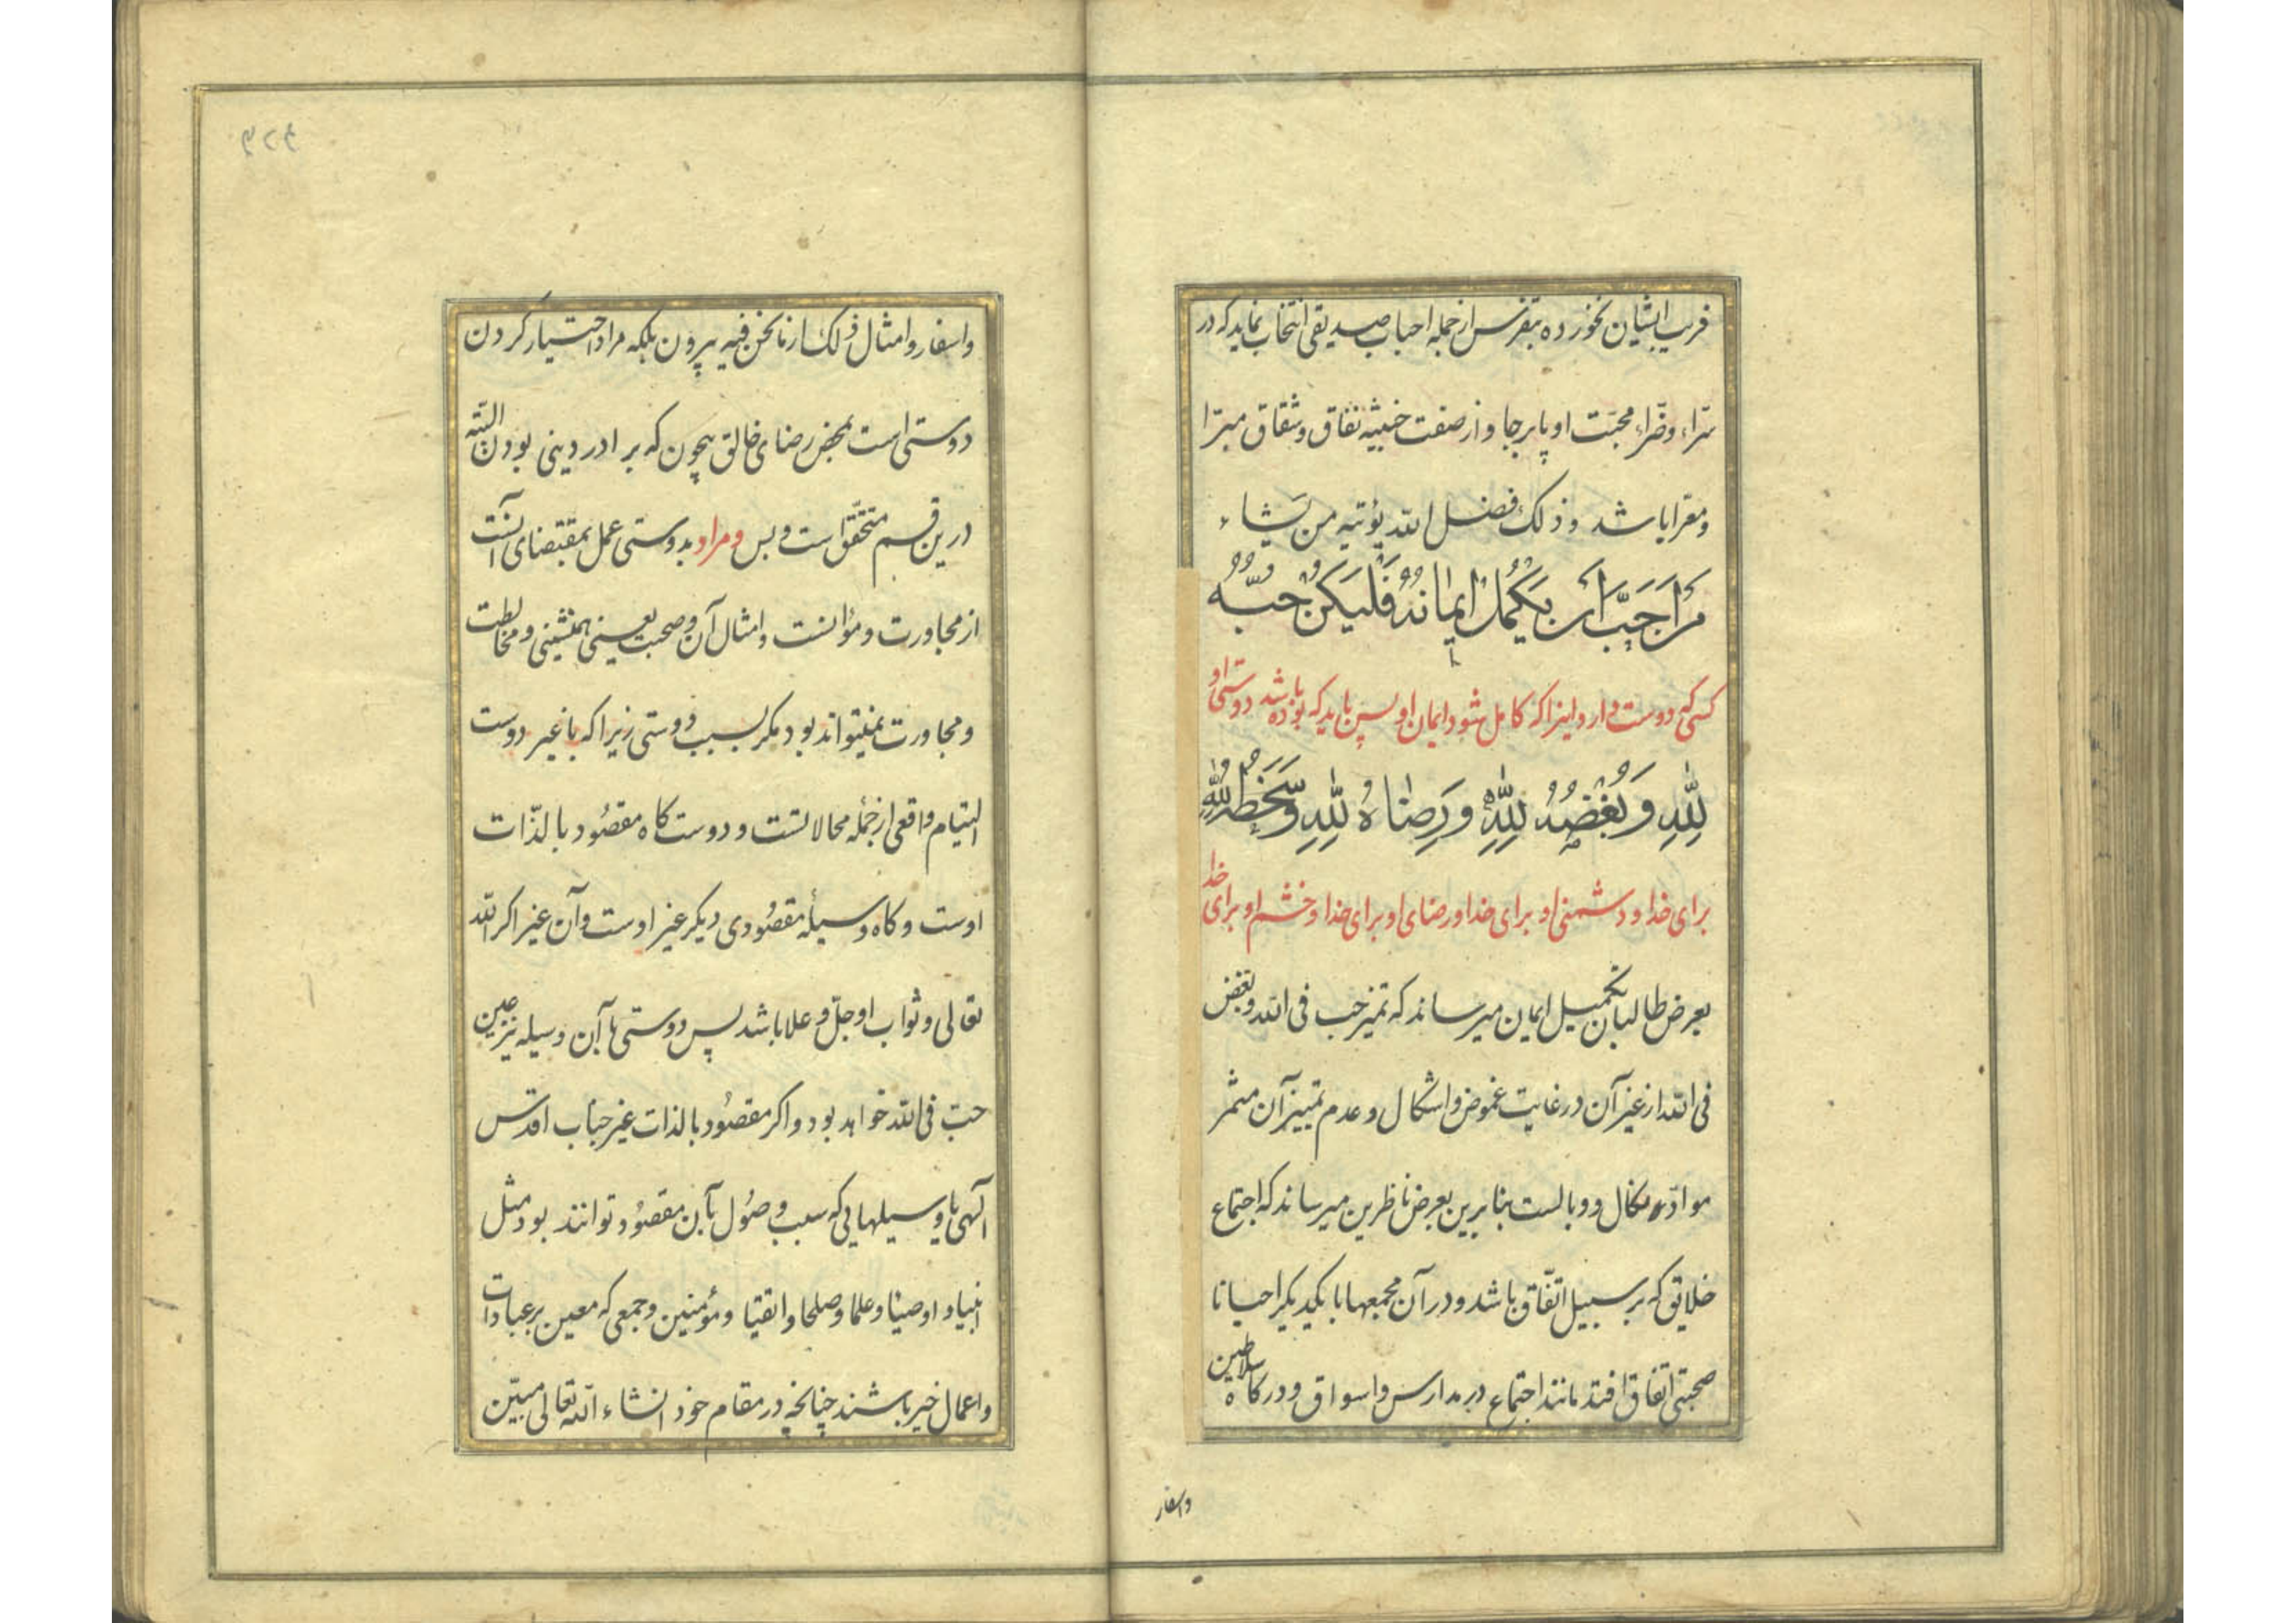 فریب ایشان نخورده بتفرس از جمله احباب صدیقی انتخاب نماید که در
سرّاء وضرّاء محبّت او پابرجا و از صفت خبیثه نفاق و شقاق مبرّا
و معرا باشد و ذلک فضل الله یؤتیه من یشاء
مَن اَحَبَّ اَن یَکمُلَ ایمانُهُ فَلیَکُن حُبُّهُ
کسی که دوست دارد اینرا که کامل شود ایمان او پس باید که بوده باشد دوستی او
لِلّٰهِ وَ بُغضُهُ لِلّٰهِ وَ رِضاهُ لِلّٰهِ وَ سَخَطُهُ لِلّٰهِ
برای خدا و دشمنی او برای خدا و رضای او برای خدا و خشم او برای خدا
بعرض طالبان تکمیل ایمان میرساند که تمیز حب فی الله و بغض
فی الله از غیر آن در غایت غموض و اشکال و عدم تمییز آن مثمر
موادّ نکال و وبالست بنابرین بعرض ناظرین میرساند که اجتماع
خلایق که بر سبیل اتّفاق باشد و در آن مجمعها با یکدیگر احیانا
صحبتی اتفاق افتد مانند اجتماع در مدارس و اسواق و درکاه سلاطین
واسفار
واسفار و امثال ذلک از ما نحن فیه بیرون بلکه مراد اختیار کردن
دوستی است بمحض رضای خالق بیچون که برادر دینی بودن البتّه
درین قسم متحقّق است و بس و مراد بدوستی عمل بمقتضای آنست
از مجاورت و مؤانست و امثال آن و صحبت یعنی همنشینی و مخالطت
و مجاورت نمیتواند بود مکر بسبب دوستی زیرا که با غیر دوست
التیام واقعی از جملهٔ محالاتست و دوست کاه مقصود بالذّات
اوست و کاه وسیلهٔ مقصودی دیکر غیر اوست و آن غیر اکر الله
تعالی و ثواب او جلّ و علا باشد پس دوستی با آن وسیله نیز عین
حبّ فی الله خواهد بود و اکر مقصود بالذات غیر جناب اقدس
الهی یا وسیلهایی که سبب وصول بآن مقصود توانند بود مثل
انبیا و اوصیا و علما و صلحا و اتقیا و مؤمنین و جمعی که معین بر عبادات
و اعمال خیر باشند چنانچه در مقام خود انشاء الله تعالی مبیّن